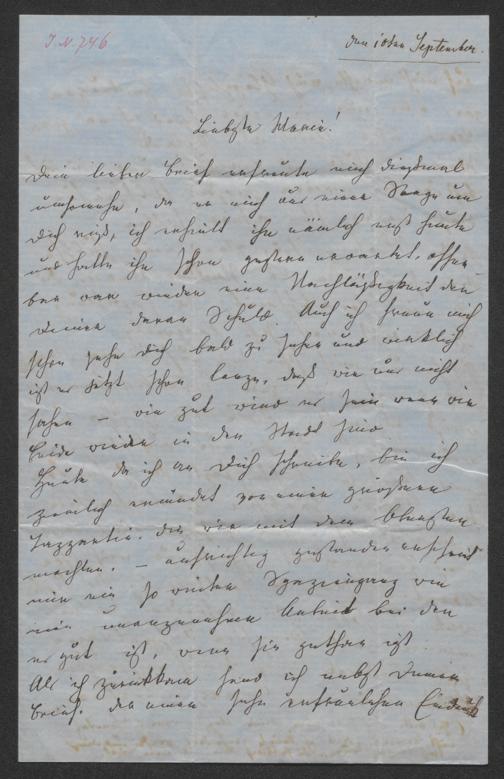 I.N. 746
den 10ten September.
Liebste Marie!
Dein lieber Brief erfreute mich diesmal
umsomehr, da er mich aus einer Sorge um
Dich riß, ich erhielt ihn nämlich erst heute
und hatte ihn schon gestern erwartet, offen
bar war wieder eine Nachläßigkeit der
Diener daran Schuld. Auch ich freue mich
schon sehr Dich bald zu sehen und wirklich
ist es jetzt schon lange, daß wir uns nicht
sahen – wie gut wird es sein wenn wir
beide wieder in der Stadt sind
Heute da ich an Dich schreibe, bin ich
ziemlich ermüdet von einer größeren
die wir mit dem
machten. – aufrichtig gestanden erscheint
mir ein so weiter Spaziergang wie
eine unangenehme Arbeit bei der
es gut ist, wenn sie gethan ist
Als ich zurückkam fand ich nebst Deinem
Brief, der einen sehr erfreulichen Eindruck